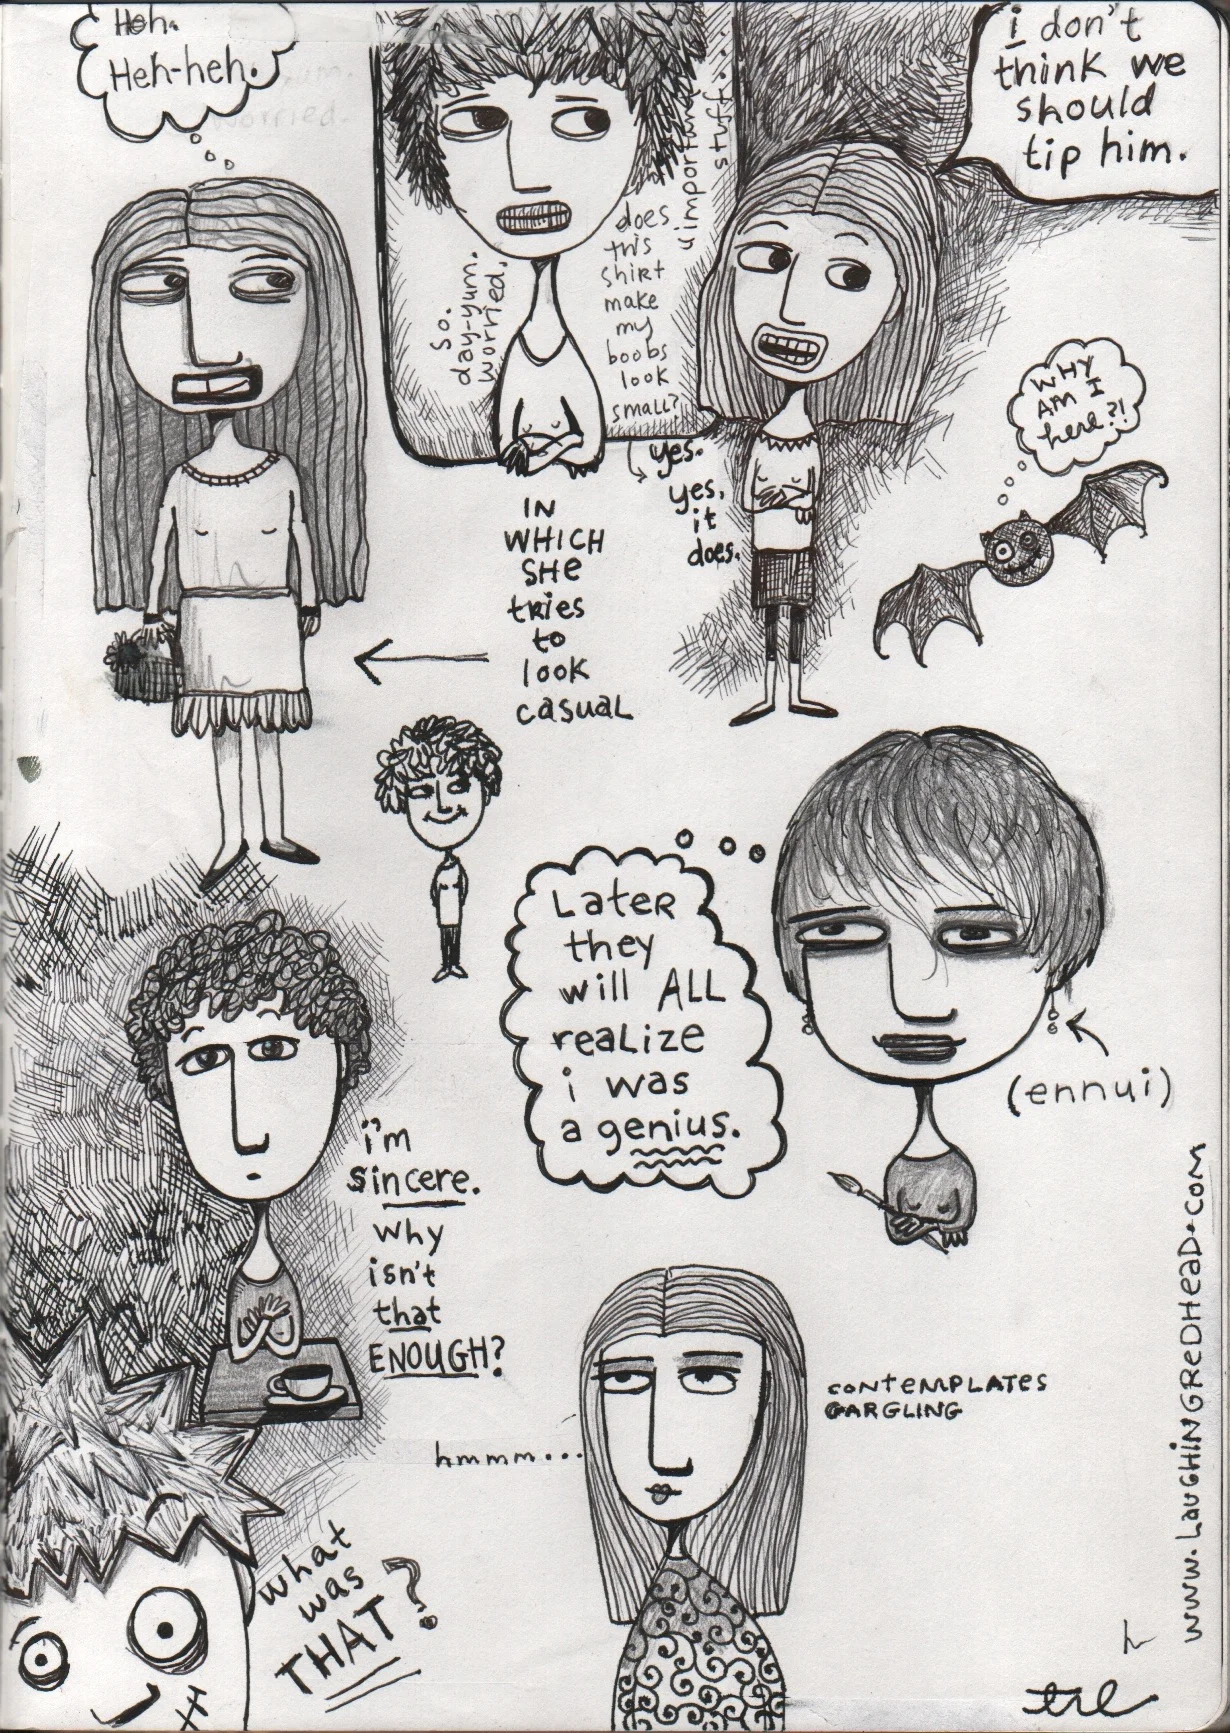 Heh.
Heh-heh.
i don't
think we
should
tip him.
So.
day-yum.
worried.
does
this
shirt
make
my
boobs
look
small?
unimportant
stuff...
yes.
yes,
it
does.
WHY
AM I
here?!
IN
WHICH
SHe
tries
to
look
casual
Later
they
will ALL
reaLize
i was
a genius.
(ennui)
i'm
sincere.
why
isn't
that
ENOUGH?
hmmm...
CONTEMPLATES
GARGLING
what
was
THAT?
www.LaugHiNGReDHeaD.com